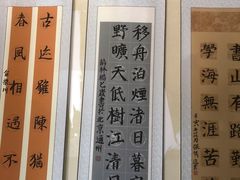 書山有路
學海無涯苦
移舟泊煙渚日暮
野曠天低樹江清
古迹雖陳猶
春風相遇不